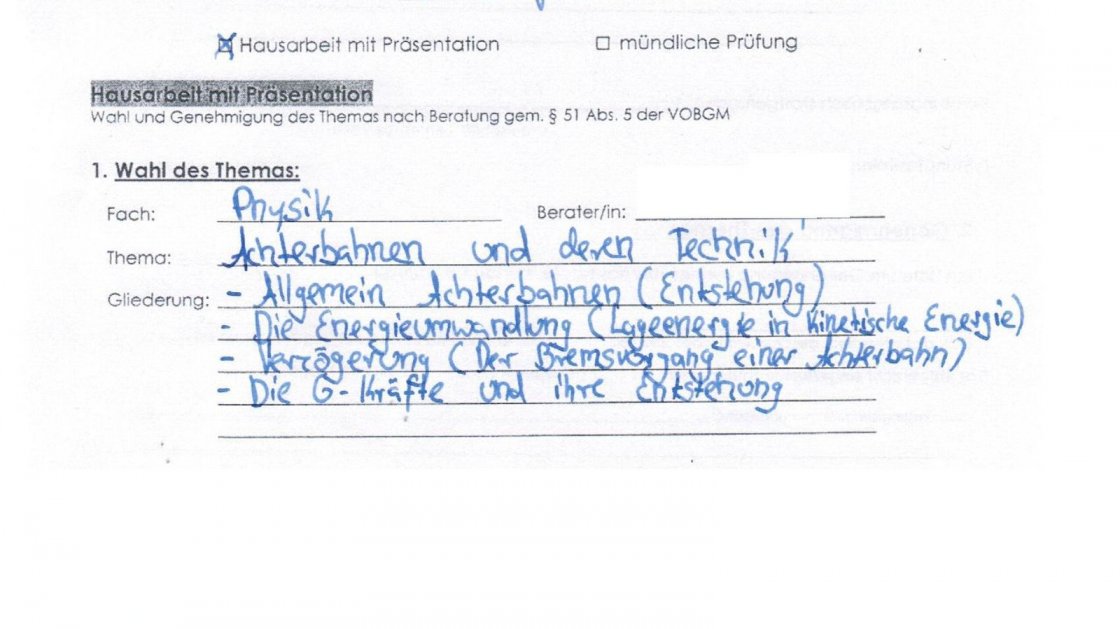 ☒ Hausarbeit mit Präsentation ☐ mündliche Prüfung
Hausarbeit mit Präsentation
Wahl und Genehmigung des Themas nach Beratung gem. § 51 Abs. 5 der VOBGM
1. Wahl des Themas:
Fach: Physik Berater/in:
Thema: Achterbahnen und deren Technik
Gliederung: - Allgemein Achterbahnen (Entstehung)
- Die Energieumwandlung (Lageenergie in Kinetische Energie)
- Verzögerung (Der Bremsvorgang einer Achterbahn)
- Die G-Kräfte und ihre Entstehung